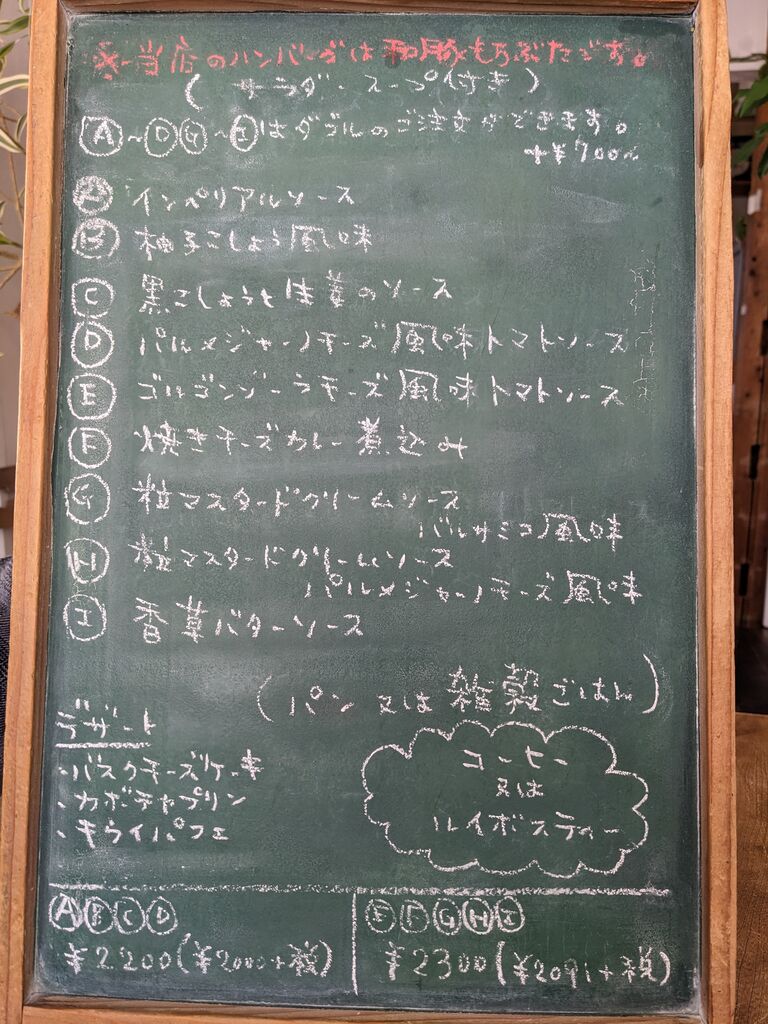 ※当店のハンバーグは和豚もちぶたです。
(サラダ・スープ付き)
Ⓐ~ⒹⒼ~Ⓘはダブルのご注文ができます。
+¥700~
Ⓐ インペリアルソース
Ⓑ 柚子こしょう風味
Ⓒ 黒こしょうと生姜のソース
Ⓓ パルメジャーノチーズ風味トマトソース
Ⓔ ゴルゴンゾーラチーズ風味トマトソース
Ⓕ 焼きチーズカレー煮込み
Ⓖ 粒マスタードクリームソース
バルサミコ風味
Ⓗ 粒マスタードクリームソース
パルメジャーノチーズ風味
Ⓘ 香草バターソース
(パン又は雑穀ごはん)
デザート
・バスクチーズケーキ
・カボチャプリン
・キウイパフェ
コーヒー
又は
ルイボスティー
ⒶⒷⒸⒹ
¥2200(¥2000+税)
ⒺⒻⒼⒽⒾ
¥2300(¥2091+税)